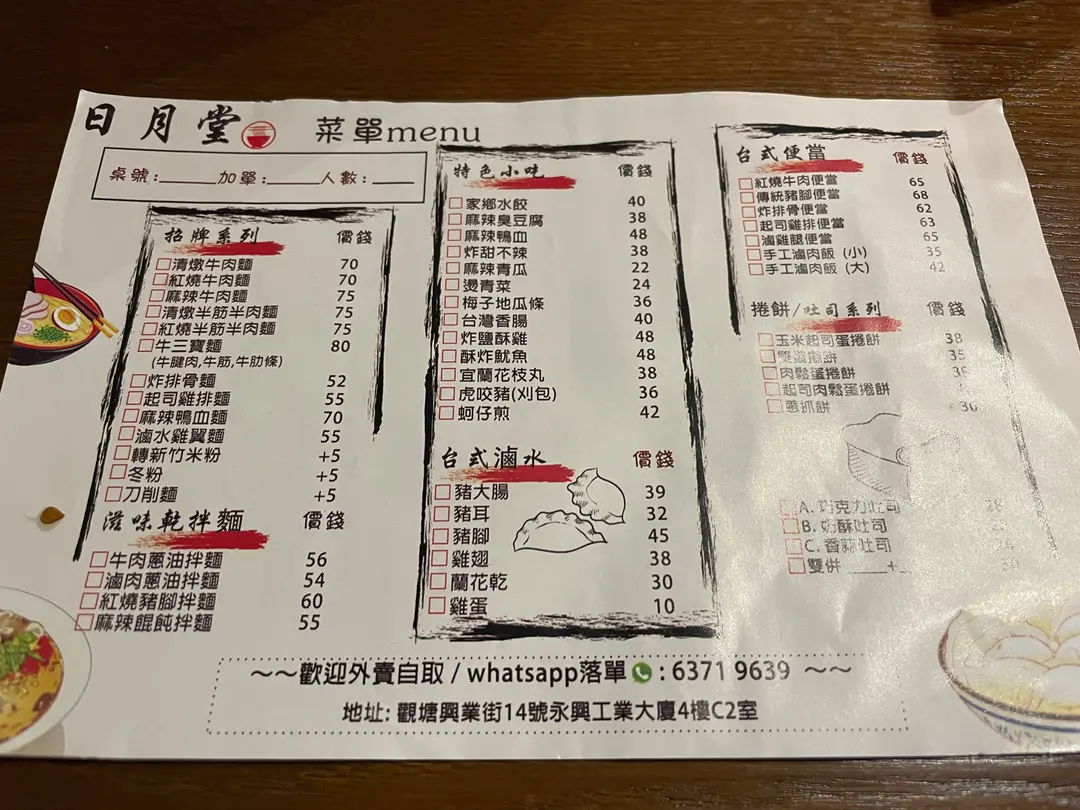 日月堂 菜單menu
桌號:_____加單:_____人數:____
招牌系列 價錢
清燉牛肉麵 70
紅燒牛肉麵 70
麻辣牛肉麵 75
清燉半筋半肉麵 75
紅燒半筋半肉麵 75
牛三寶麵 80
(牛腱肉,牛筋,牛肋條)
炸排骨麵 52
起司雞排麵 55
麻辣鴨血麵 70
滷水雞翼麵 55
轉新竹米粉 +5
冬粉 +5
刀削麵 +5
滋味乾拌麵 價錢
牛肉蔥油拌麵 56
滷肉蔥油拌麵 54
紅燒豬腳拌麵 60
麻辣餛飩拌麵 55
特色小吃 價錢
家鄉水餃 40
麻辣臭豆腐 38
麻辣鴨血 48
炸甜不辣 38
麻辣青瓜 22
燙青菜 24
梅子地瓜條 36
台灣香腸 40
炸鹽酥雞 48
酥炸魷魚 48
宜蘭花枝丸 38
虎咬豬(刈包) 36
蚵仔煎 42
台式滷水 價錢
豬大腸 39
豬耳 32
豬腳 45
雞翅 38
蘭花乾 30
雞蛋 10
台式便當 價錢
紅燒牛肉便當 65
傳統豬腳便當 68
炸排骨便當 62
起司雞排便當 63
滷雞腿便當 65
手工滷肉飯 (小) 35
手工滷肉飯 (大) 42
捲餅/吐司系列 價錢
玉米起司蛋捲餅 38
雙蛋捲餅 35
肉鬆蛋捲餅
起司肉鬆蛋捲餅
蔥抓餅 30
A. 巧克力吐司
B. 奶酥吐司
C. 香蒜吐司
雙併 ____+_
～～歡迎外賣自取 / whatsapp落單 : 6371 9639 ～～
地址: 觀塘興業街14號永興工業大廈4樓C2室